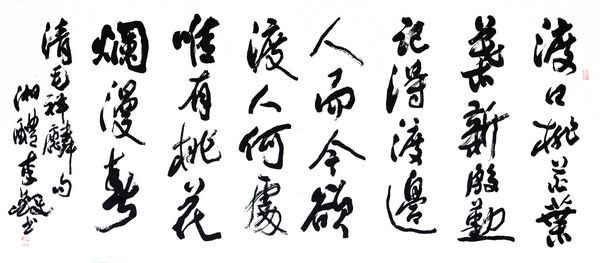 渡口桃花葉
葉新殷勤
記得渡邊
人而今欲
渡人何處
唯有桃花
爛漫春
清毛祥麟句
湘醴李鐸書